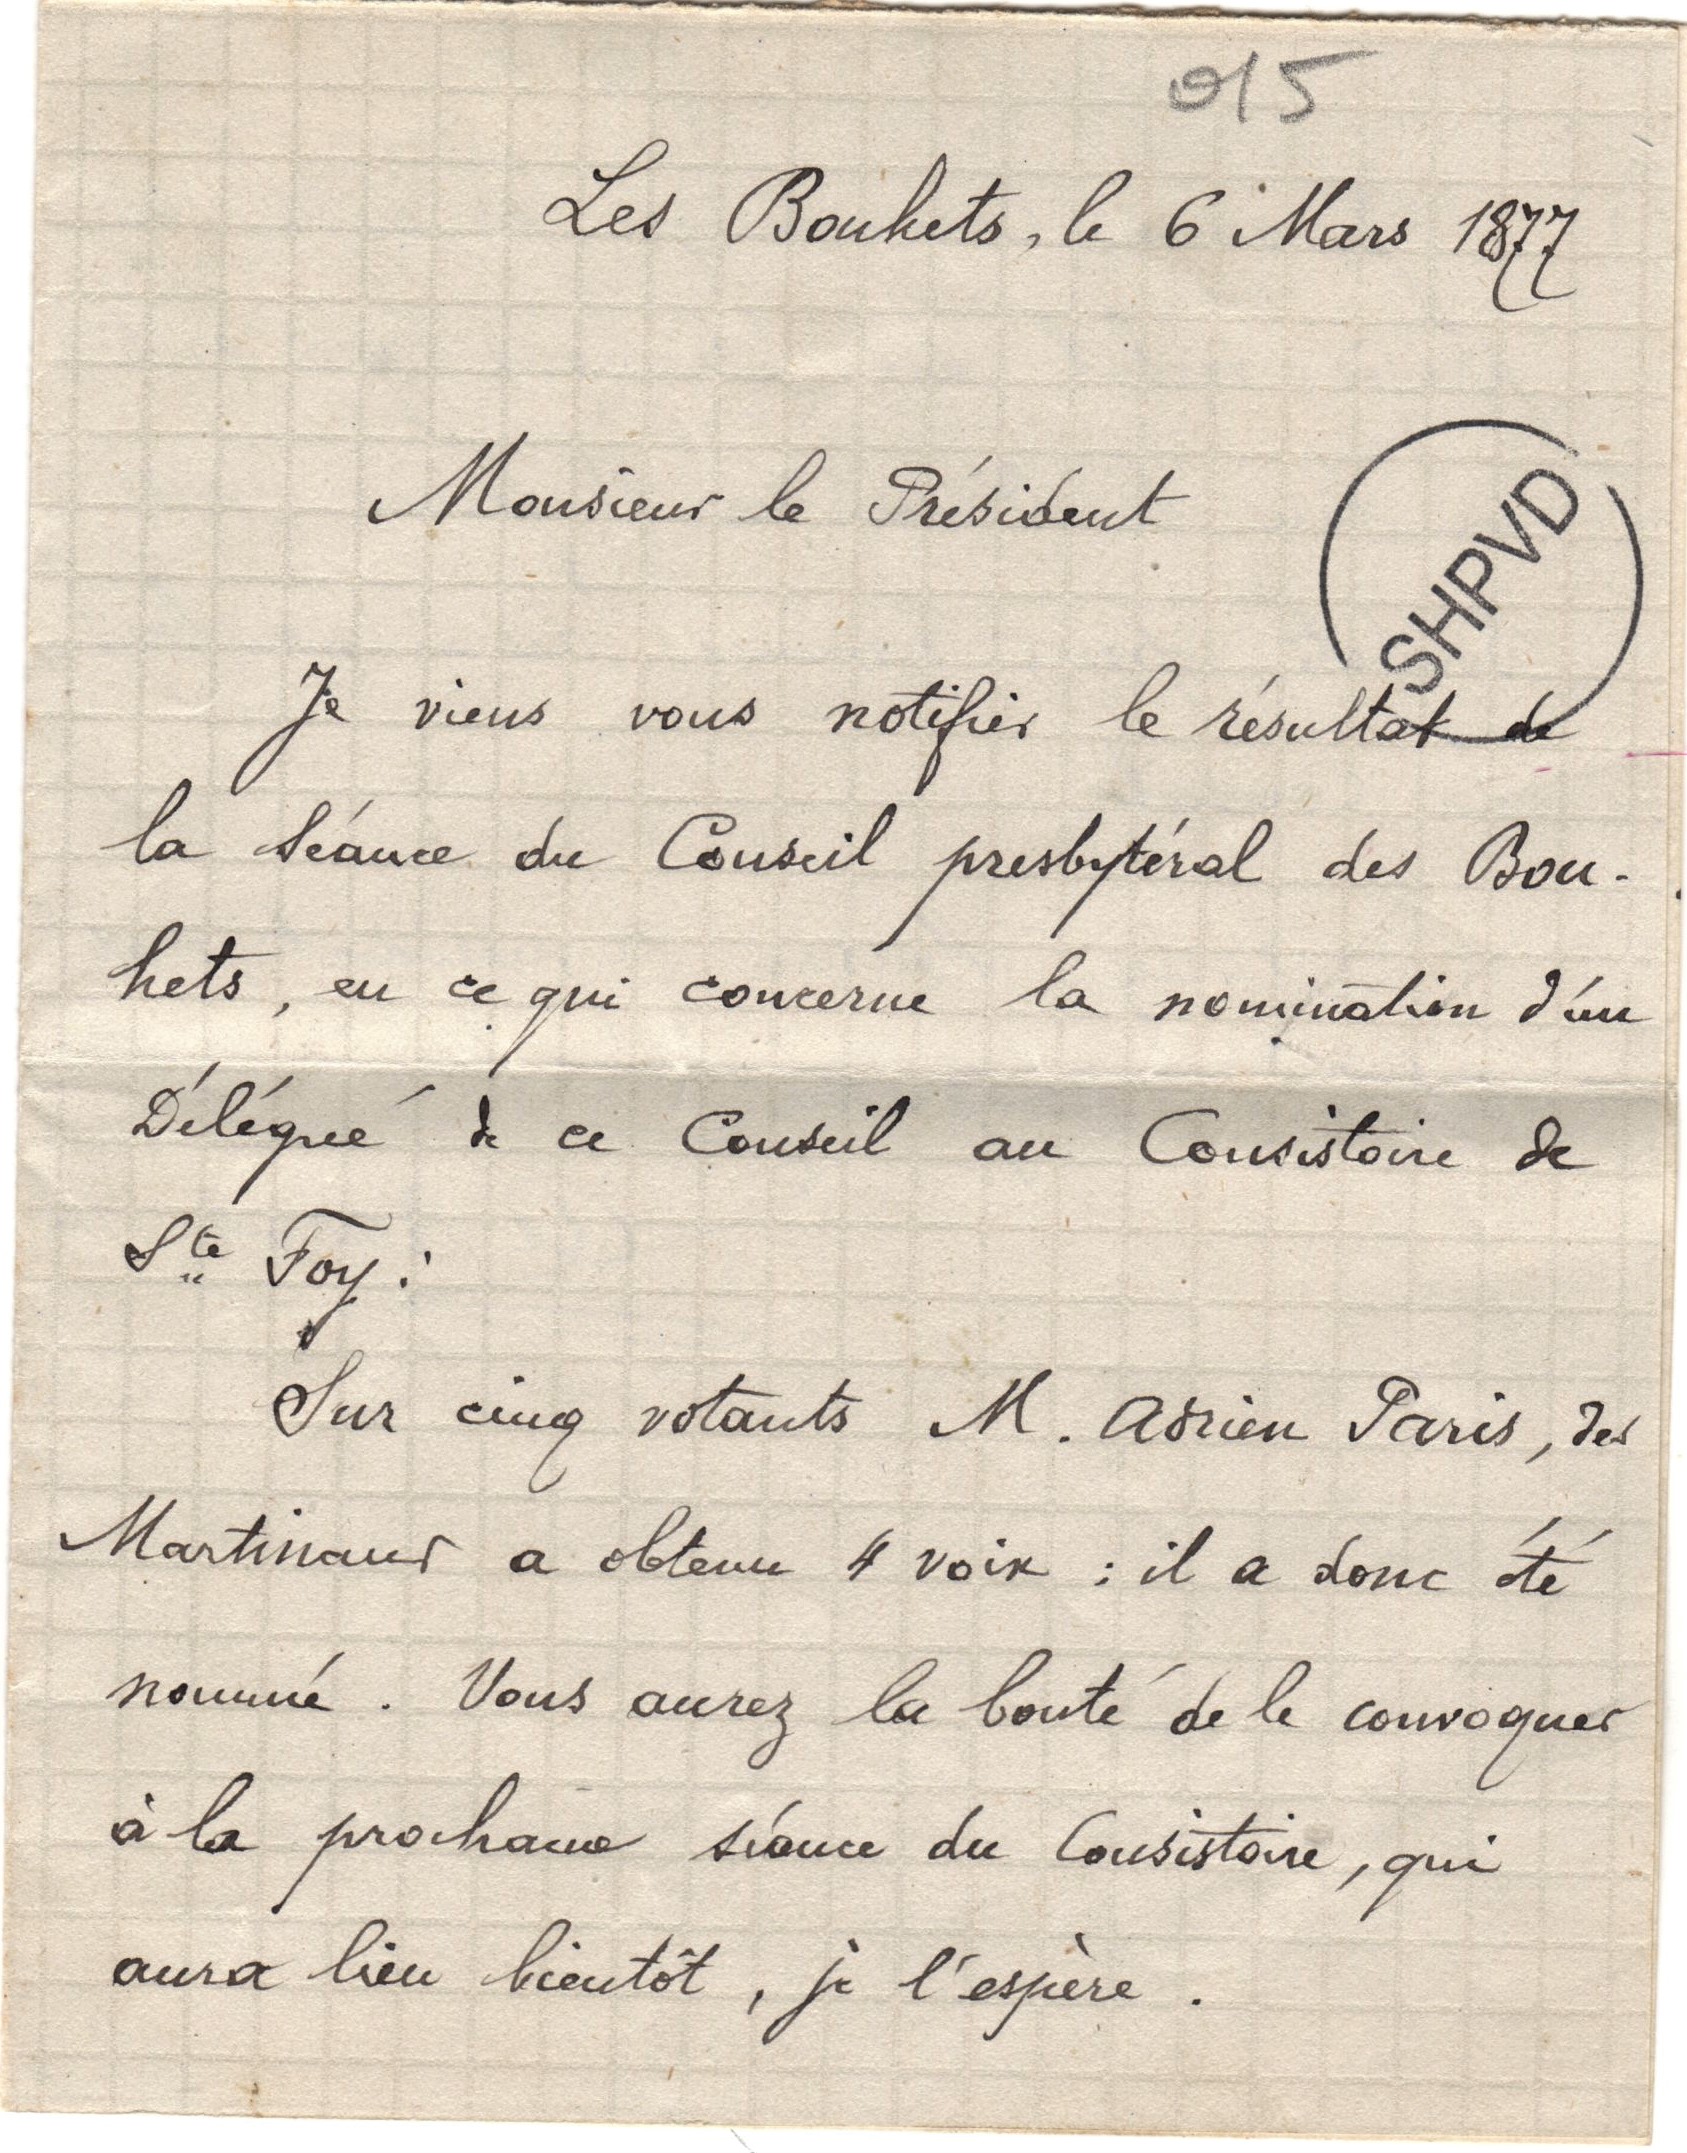 015
Les Bouhets, le 6 Mars 1877
Monsieur le Président
SHPVD
Je viens vous notifier le résultat de
la séance du Conseil presbytéral des Bou-
hets, en ce qui concerne la nomination d'un
Délégué de ce Conseil au Consistoire de
Ste Foy :
Sur cinq votants M. Adrien Paris, des
Martinaud a obtenu 4 voix : il a donc été
nommé. Vous aurez la bonté de le convoquer
à la prochaine séance du Consistoire, qui
aura lieu bientôt, je l'espère.